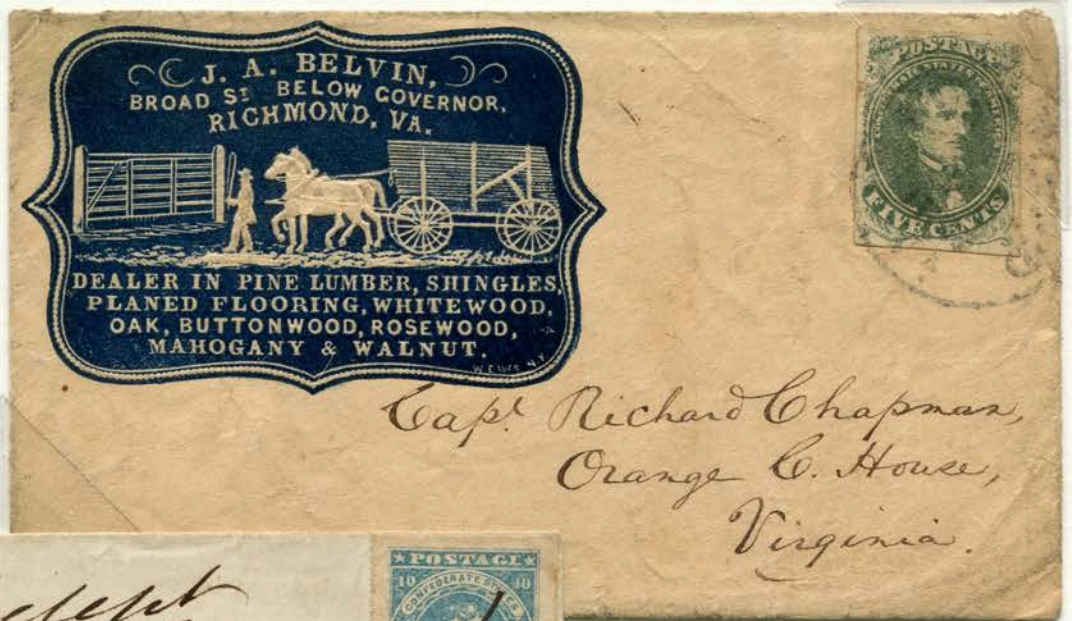 J. A. BELVIN,
BROAD ST BELOW GOVERNOR,
RICHMOND, VA.
DEALER IN PINE LUMBER, SHINGLES,
PLANED FLOORING, WHITEWOOD,
OAK, BUTTONWOOD, ROSEWOOD,
MAHOGANY & WALNUT.
POSTAGE
CONFEDERATE STATES OF AMERICA
FIVE CENTS
Capt Richard Chapman,
Orange C. House,
Virginia.
POSTAGE
10 10
CONFEDERATE STATES